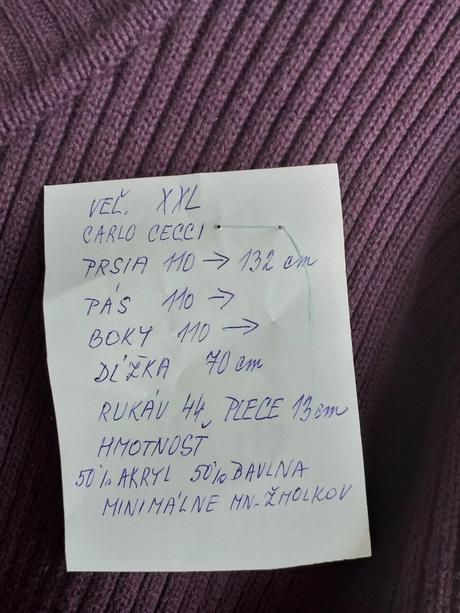 VEĽ. XXL
CARLO CECCI
PRSIA 110 → 132 cm
PÁS 110 →
BOKY 110 →
DĹŽKA 70 cm
RUKÁV 44, PLECE 13 cm
HMOTNOSŤ
50% AKRYL 50% BAVLNA
MINIMÁLNE MN. ŽMOLKOV